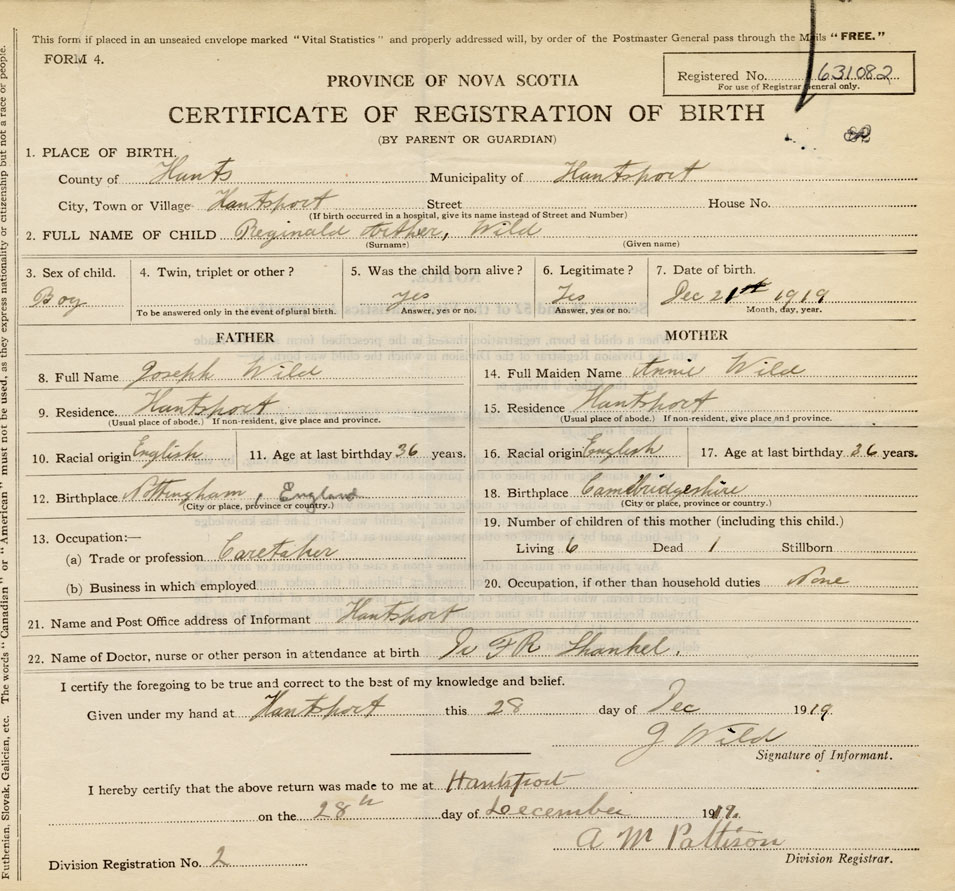 This form if placed in an unsealed envelope marked "Vital Statistics" and properly addressed will, by order of the Postmaster General pass through the Mails "FREE."
FORM 4.
Registered No. 631082
For use of Registrar General only.
PROVINCE OF NOVA SCOTIA
CERTIFICATE OF REGISTRATION OF BIRTH
(BY PARENT OR GUARDIAN)
1. PLACE OF BIRTH.
County of Hants Municipality of Hantsport
City, Town or Village Hantsport Street House No.
(If birth occurred in a hospital, give its name instead of Street and Number)
2. FULL NAME OF CHILD Reginald Arther, Wild
(Surname) (Given name)
3. Sex of child. 4. Twin, triplet or other? 5. Was the child born alive? 6. Legitimate? 7. Date of birth.
Boy yes Yes Dec 21st 1919
To be answered only in the event of plural birth. Answer, yes or no. Answer, yes or no. Month, day, year.
FATHER MOTHER
8. Full Name Joseph Wild 14. Full Maiden Name Annie Wild
9. Residence Hantsport 15. Residence Hantsport
(Usual place of abode.) If non-resident, give place and province. (Usual place of abode.) If non-resident, give place and province.
10. Racial origin English 11. Age at last birthday 36 years. 16. Racial origin English 17. Age at last birthday 36 years.
12. Birthplace Nottingham, England 18. Birthplace Cambridgeshire
(City or place, province or country.) (City or place, province or country.)
13. Occupation:— 19. Number of children of this mother (including this child.)
(a) Trade or profession Caretaker Living 6 Dead 1 Stillborn
(b) Business in which employed 20. Occupation, if other than household duties None
21. Name and Post Office address of Informant Hantsport
22. Name of Doctor, nurse or other person in attendance at birth Dr F R Shankel.
I certify the foregoing to be true and correct to the best of my knowledge and belief.
Given under my hand at Hantsport this 28 day of Dec 1919.
J Wild
Signature of Informant.
I hereby certify that the above return was made to me at Hantsport
on the 28th day of December 1919.
A M Pattison
Division Registration No. 2 Division Registrar.
Ruthenian, Slovak, Galician, etc. The words "Canadian" or "American" must not be used, as they express nationality or citizenship but not a race or people.